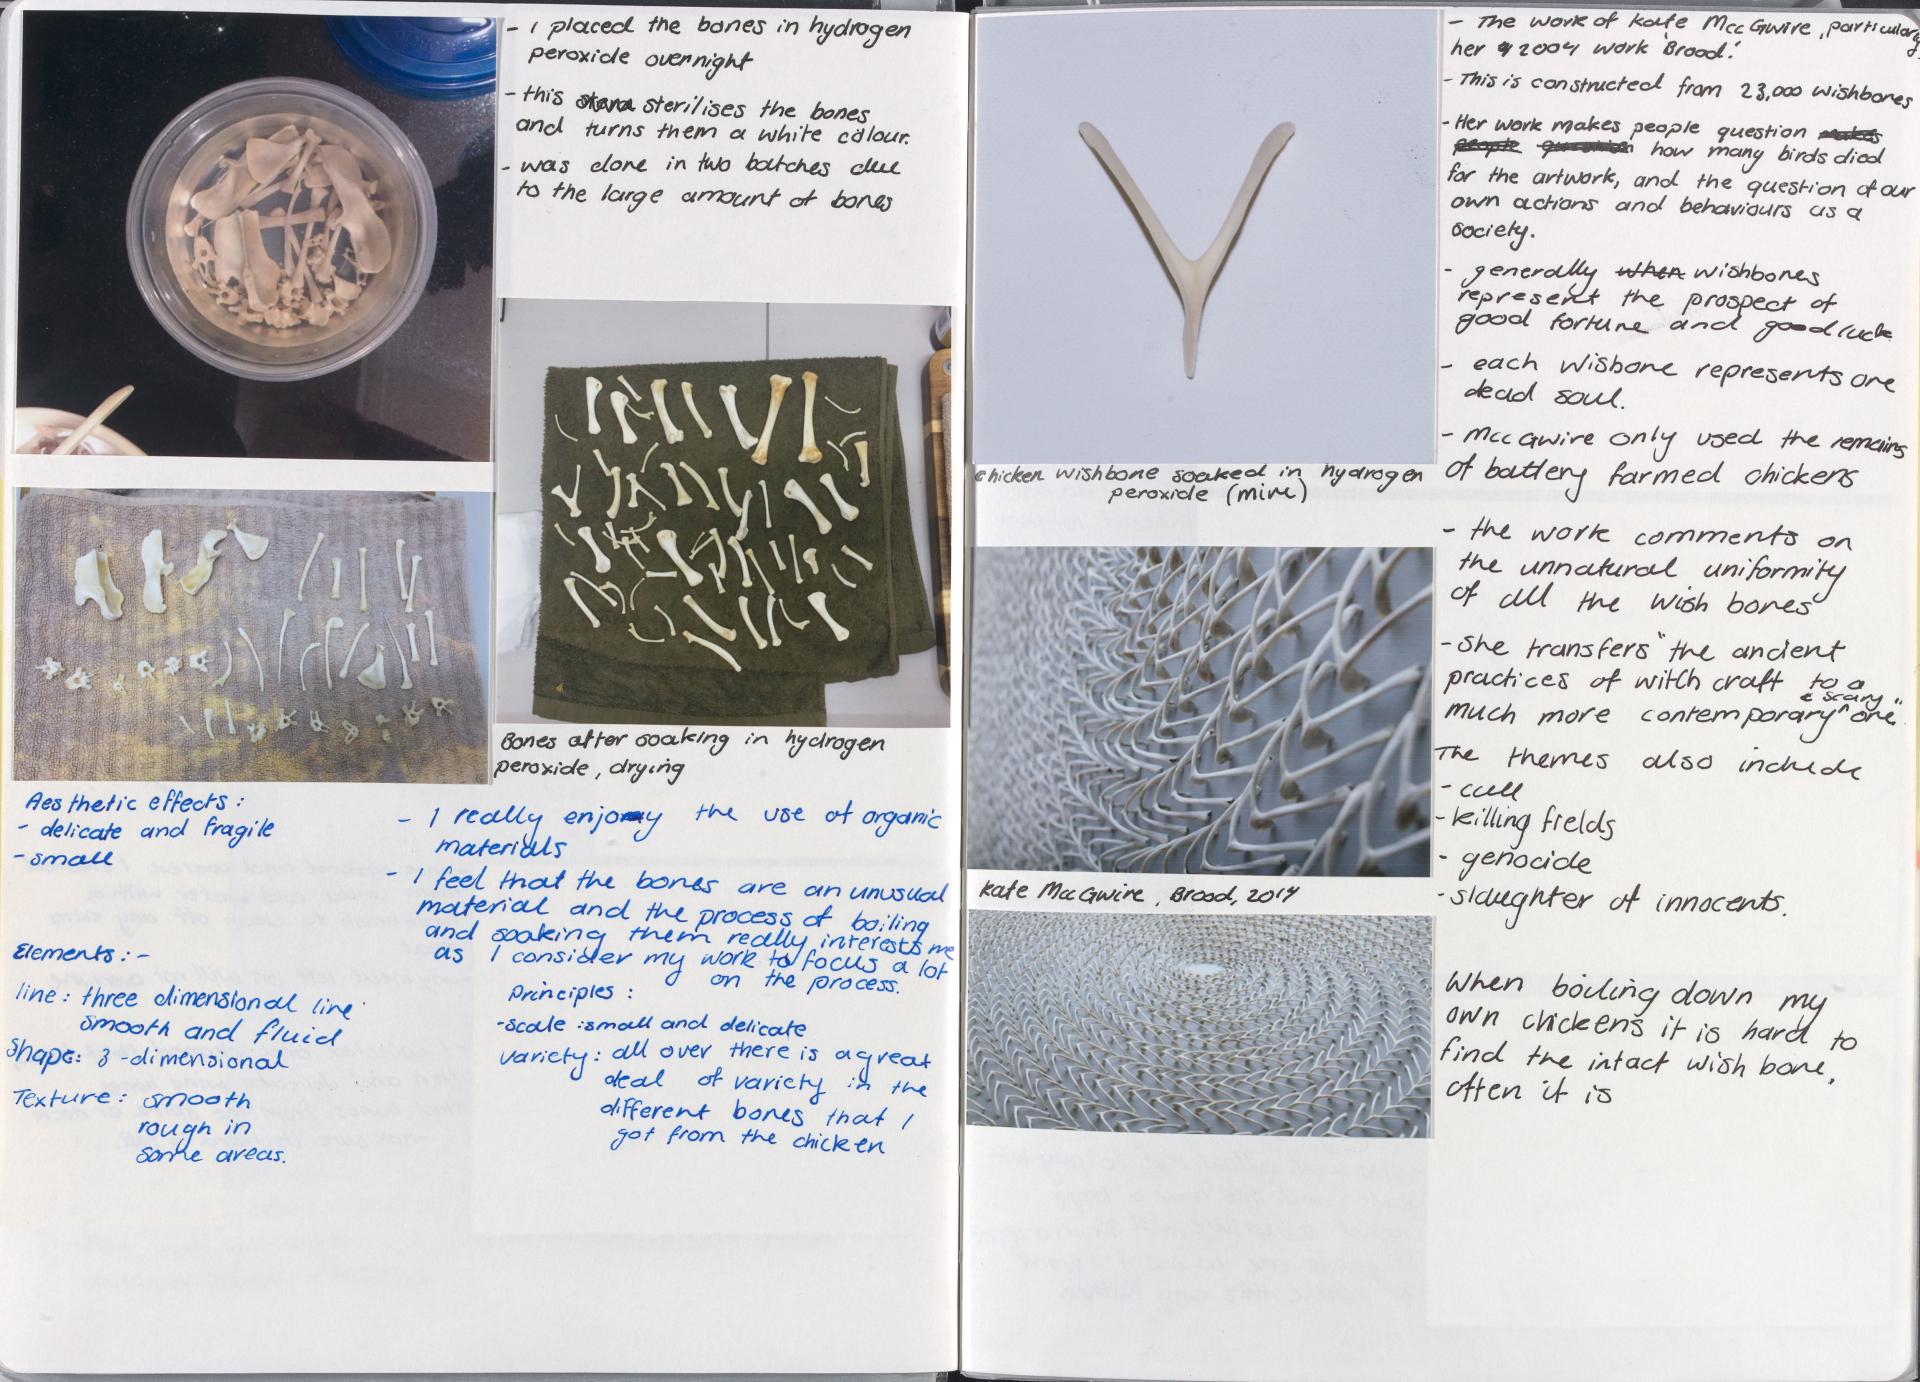 - I placed the bones in hydrogen
peroxide overnight
- this sterilises the bones
and turns them a white colour.
- was done in two batches due
to the large amount of bones
Bones after soaking in hydrogen
peroxide, drying
Aesthetic effects:
- delicate and fragile
- small
Elements: -
line: three dimensional line
smooth and fluid
Shape: 3-dimensional
Texture: smooth
rough in
some areas.
- I really enjoy the use of organic
materials
- I feel that the bones are an unusual
material and the process of boiling
and soaking them really interests me
as I consider my work to focus a lot
on the process.
Principles:
- scale: small and delicate
variety: all over there is a great
deal of variety in the
different bones that I
got from the chicken
chicken wishbone soaked in hydrogen
peroxide (mine)
Kate MccGwire, Brood, 2014
- The work of Kate MccGwire, particularly
her 2004 work 'Brood'.
- This is constructed from 23,000 wishbones
- Her work makes people question makes
people question how many birds died
for the artwork, and the question of our
own actions and behaviours as a
society.
- generally when wishbones
represent the prospect of
good fortune and good luck
- each wisbone represents one
dead soul.
- MccGwire only used the remains
of battery farmed chickens
- the work comments on
the unnatural uniformity
of all the wish bones
- She transfers "the ancient
practices of witch craft to a
much more contemporary & scary one"
The themes also include
- cull
- killing fields
- genocide
- slaughter of innocents.
When boiling down my
own chickens it is hard to
find the intact wish bone,
often it is